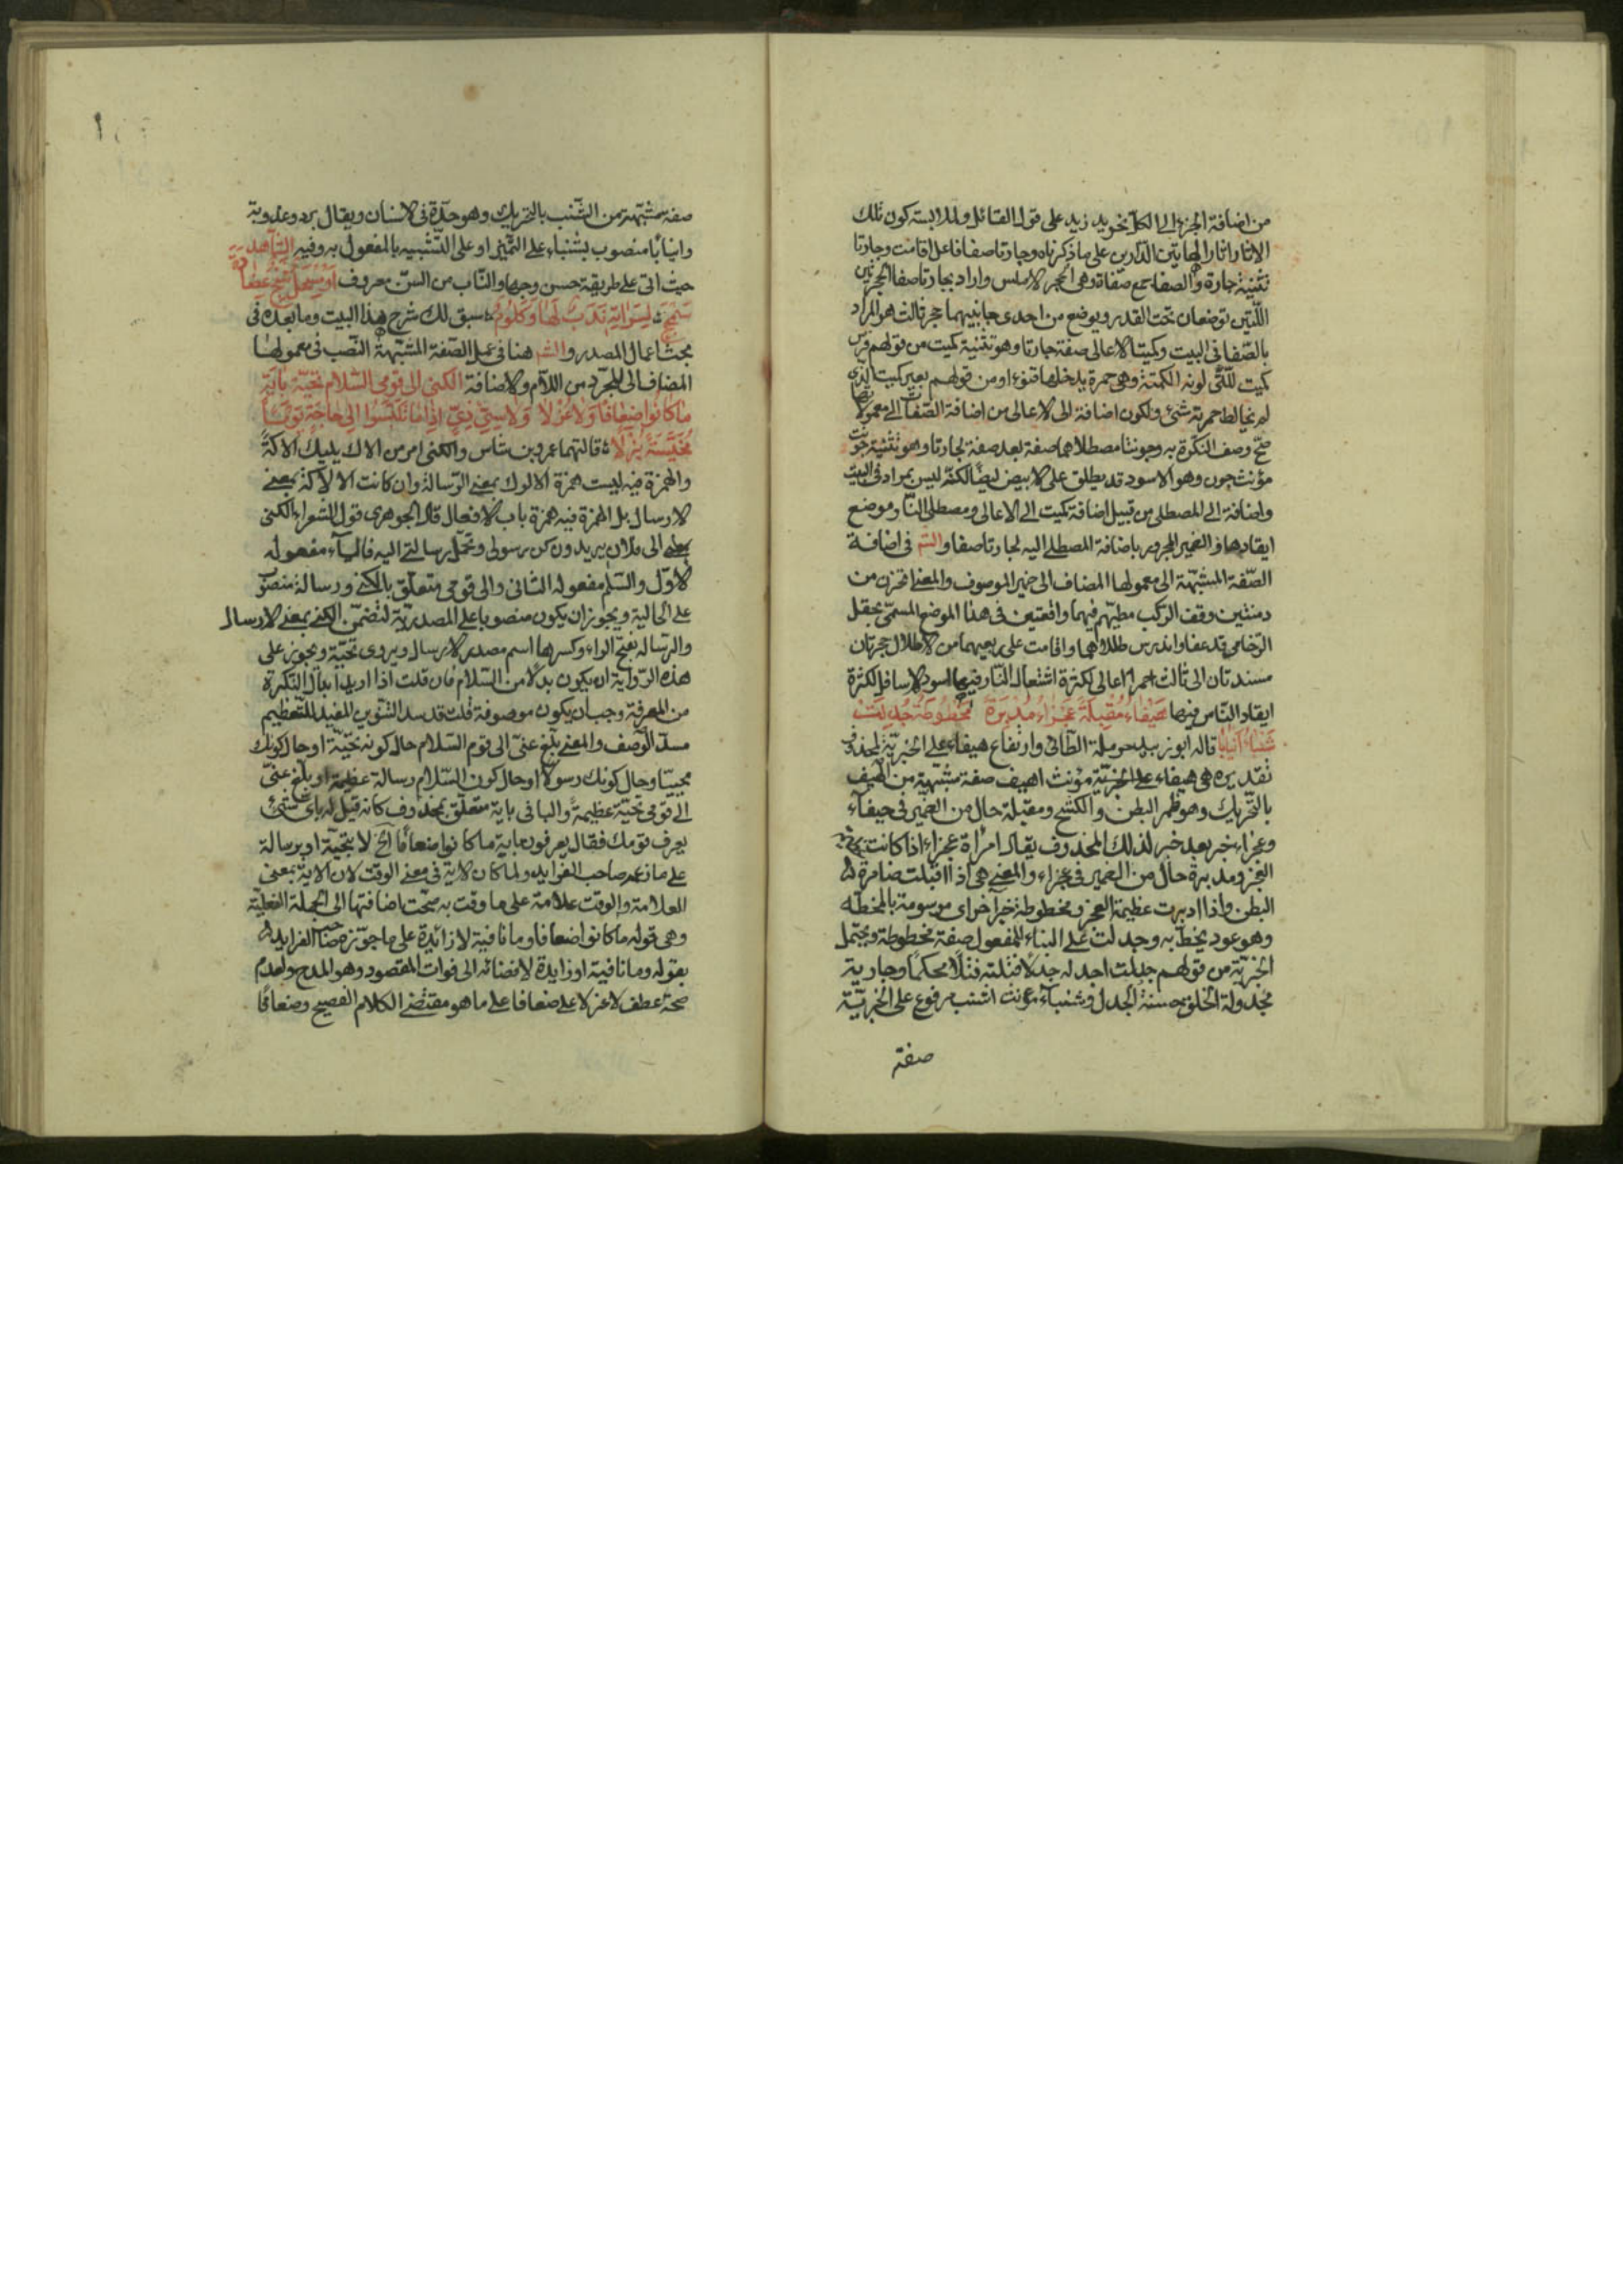 من اضافة الجزء الى الكل نحو يد زيد على قول القائل ولملابسته كون تلك
الاثار اثار الهاتين الدارين على ما ذكرناه وجارتا صفا فاعل اقامت وجارتا
تثنية جارة والصفا جمع صفاة وهى الحجر الاملس واراد بجارتا صفا الحجرين
اللتين توضعان تحت القدر ويوضع من احدى جانبيهما حجر ثالث هو المراد
بالصفا فى البيت وكميتا الاعالى صفة جارتا وهو تثنية كميت من قولهم فرس
كميت للذى لونه الكمتة وهى حمرة يدخلها قنوء او من قولهم بعير كميت الذى
لم يخالط حمرته شئ ولكون اضافة الى الاعالى من اضافة الصفات الى معمولاتها
صح وصف النكرة به وجونتا مصطلاهما صفة بعد صفة لجارتا وهو تثنية جونة
مؤنث جون وهو الاسود قد يطلق على الابيض ايضا لكنه ليس بمراد فى البيت
واضافة الى المصطلى من قبيل اضافة كميت الى الاعالى ومصطلى النار موضع
ايقادها والضمير المجرور باضافة المصطلى اليه لجارتا صفا والشم فى اضافة
الصفة المشبهة الى معمولها المضاف الى ضمير الموصوف والمعنى اتحزن من
دمنتين وقف الركب مطيهم فيهما واقعتين فى هذا الموضع المسمى بحقل
الرخامى قد عفا واندرس طللاهما واقامت على ربعيهما من الاطلال حجرتان
مسندتان الى ثالث احمر اعالى لكثرة اشتعال النار فيها اسود الاسافل لكثرة
ايقاد الناس فيها هَيْفَاءُ مُقْبِلَةً عَجْزَاءُ مُدْبِرَةً مَخْطُوطَةٌ جُدِلَتْ
شَنْبَاءُ اَنْيَابًا قاله ابو زبيد حرملة الطائى وارتفاع هيفاء على الخبرية لمحذوف
تقديره هى هيفاء على الخبرية مؤنث اهيف صفة مشبهة من الهيف
بالتحريك وهو ضمر البطن والكشح ومقبلة حال من الضمير فى هيفاء
وعجزاء خبر بعد خبر لذلك المحذوف يقال امراة عجزاء اذا كانت عظيمة
العجز ومدبرة حال من الضمير فى عجزاء والمعنى هى اذا اقبلت ضامرة
البطن واذا ادبرت عظيمة العجز ومخطوطة خبر آخر اى موسومة بالمخطة
وهو عود يخط به وجدلت على البناء للمفعول صفة مخطوطة ويحتمل
الخبرية من قولهم جدلت اجدله جدلا فتلته فتلا محكما وجارية
مجدولة الخلق حسنة الجدل وشنباء مؤنث اشنب مرفوع على الخبرية
صفة
صفة مشبهة من الشنب بالتحريك وهو حدة فى الاسنان ويقال برد وعذوبة
وانيابا منصوب بشنباء على التميز او على التشبيه بالمفعول به وفيه الشاهد
حيث اتى على طريقة حسن وجها والناب من السن معروف اَوْ مِسْحَلٌ شَنِجٌ عِضَادَةَ
سَمْحَجٍ بِسَرَاتِهِ نَدَبٌ لَهَا وَكُلُومُ سبق لك شرح هذا البيت وما بعده فى
مبحث اعمال المصدر والشم هنا فى عمل الصفة المشبهة النصب فى معمولها
المضاف الى المجرد من اللام والاضافة الكنى الى قومى السلام تحية باية
ما كانوا ضعافا ولا عزلا ولا سيئى زى اذا ما تلبسوا الى حاجة يوما
مُخَيَّسَةً بُزْلًا قالتهما عمرو بن شاس والكنى امر من الاك يليك الاكة
والهمزة فيه ليست همزة الالوك بمعنى الرسالة وان كانت الالاكة بمعنى
الارسال بل الهمزة فيه همزة باب الافعال قال الجوهرى قول الشعراء الكنى
الى فلان يريدون كن رسولى وتحمل رسالتى اليه فالياء مفعوله
الاول والسلم مفعوله الثانى والى قومى متعلق بالكنى ورسالة منصوب
على الحالية ويجوز ان يكون منصوبا على المصدرية لتضمن الكنى بمعنى الارسال
والرسالة بفتح الراء وكسرها اسم مصدر الارسال ويروى تحية ويجوز على
هذه الرواية ان يكون بدلا من السلام فان قلت اذا اريد ابدال النكرة
من المعرفة وجب ان يكون موصوفة قلت قد سد التنوين المفيد للتعظيم
مسد الوصف والمعنى بلغ عنى الى قوم السلام حال كونه تحية او حال كونك
محييا وحال كونك رسولا او حال كون السلام رسالة عظيمة او بلغ عنى
الى قومى تحية عظيمة والبا فى باية متعلق بمحذوف كانه قيل له باى شئ
يعرف قومك فقال يعرفون باية ما كانوا ضعافا الخ لا بتحية او برسالة
على ما زعم صاحب الفرايد ولما كان الاية فى معنى الوقت لان الاية بمعنى
العلامة والوقت علامة على ما وقت به صحت اضافتها الى الجملة الفعلية
وهى قوله ما كانوا ضعافا وما نافية لا زائدة على ما جوزه صاحب الفرايد
بقوله وما نافية او زايدة لافضائه الى فوات المقصود وهو المدح ولعدم
صحة عطف لا عزلا على ضعافا على ما هو مقتضى الكلام الفصيح وضعافا